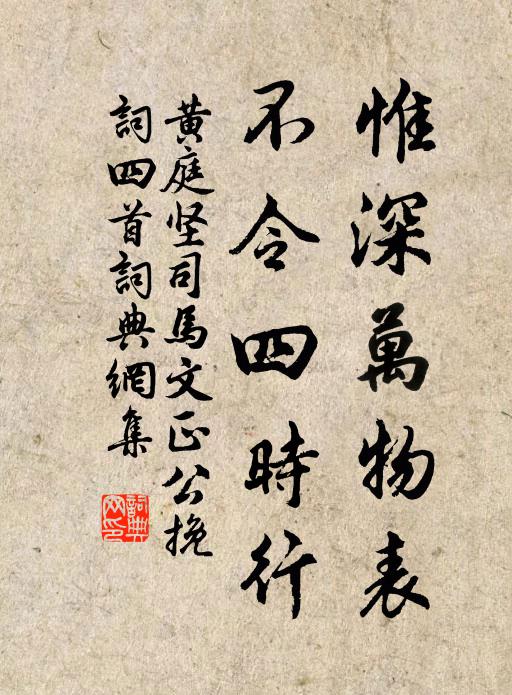 惟深萬物表
不令四時行
黄庭坚司馬文正公挽
詞四首詞典網集
詞典網印